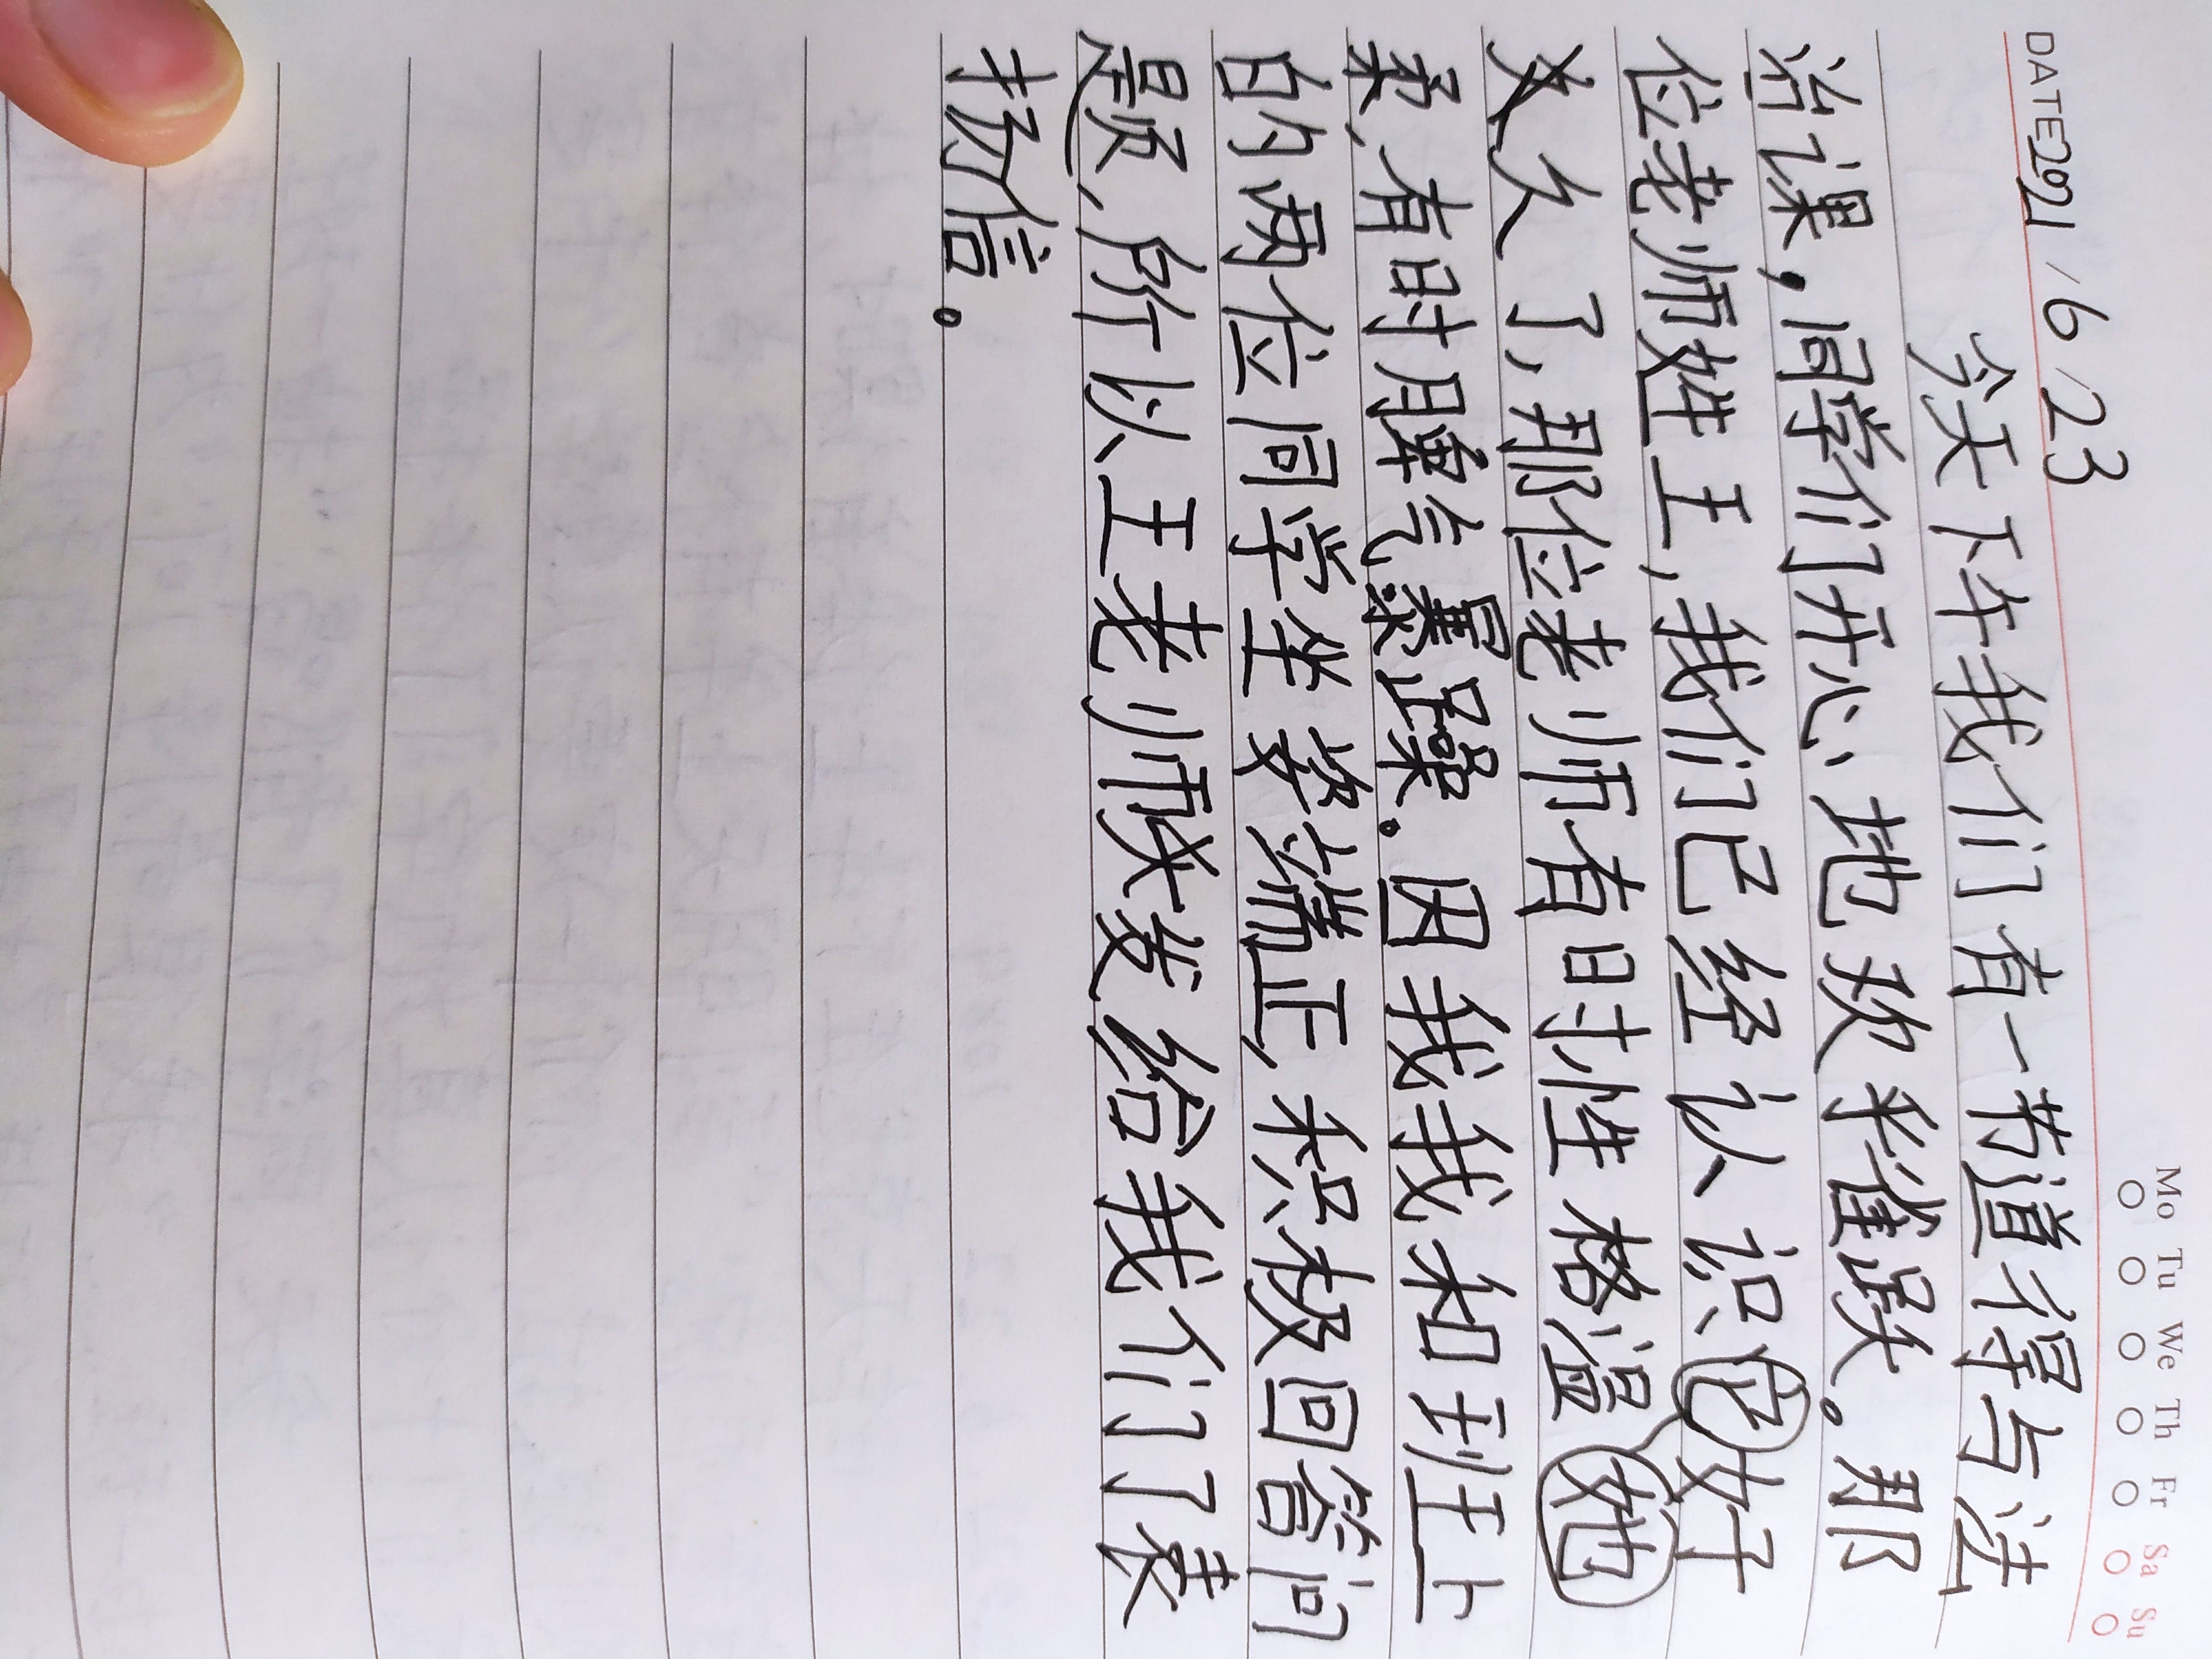 DATE 2021/6/23 Mo Tu We Th Fr Sa Su
今天下午我们有一节道得与法
治课,同学们开心地欢乎雀跃。那
位老师姓王,我们已经认识它好
久了,那位老师有时性格温
她
柔,有时脾气暴躁。因我我和班上
的两位同学坐姿端正,积极回答问
题,所以王老师发给我们了表
扬信。